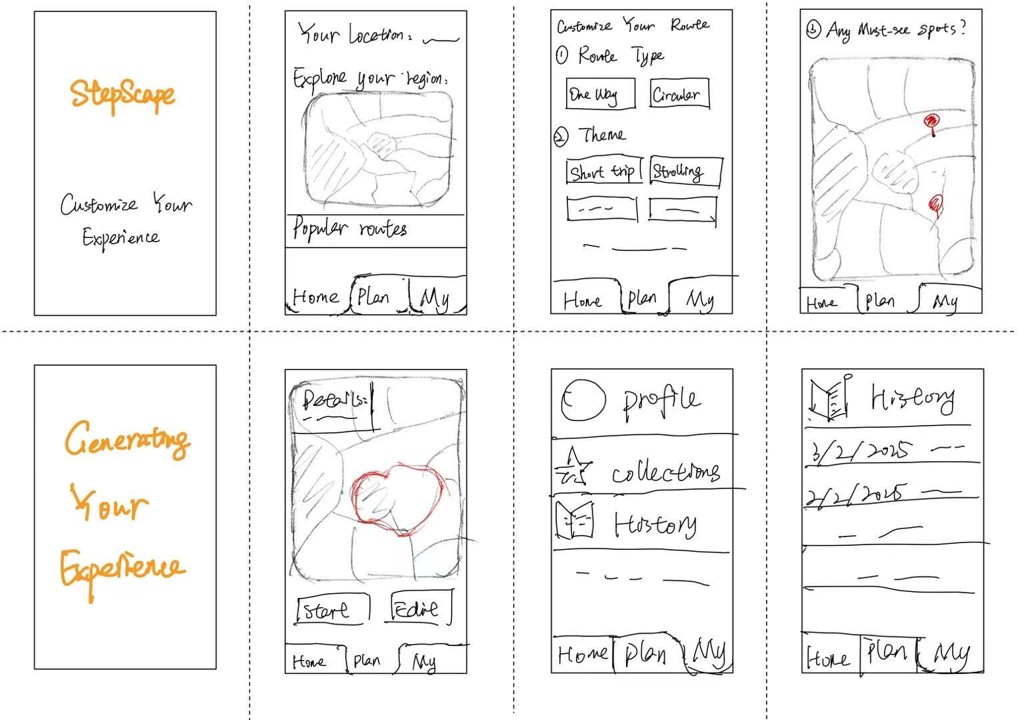 StepScape
Customize Your
Experience
Your Location:
Explore your region:
Popular routes
Home Plan My
Customize Your Route
① Route Type
One Way Circular
② Theme
Short trip Strolling
Home Plan My
③ Any Must-see spots?
Home Plan My
Generating
Your
Experience
Details:
Start Edit
Home Plan My
profile
collections
History
Home Plan My
History
3/2/2025
2/2/2025
Home Plan My